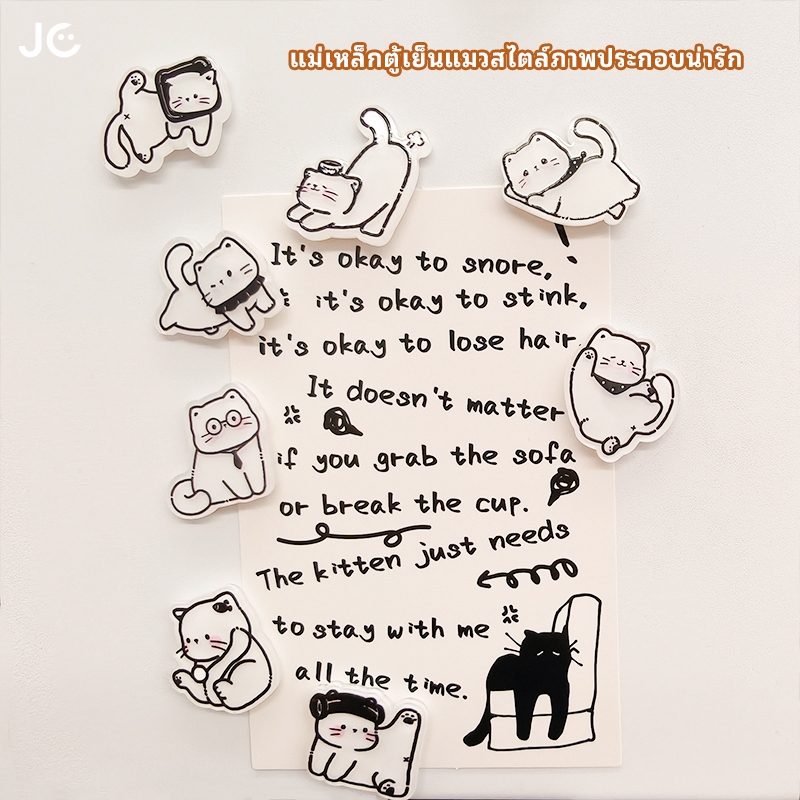 JC
แม่เหล็กตู้เย็นแมวสไตล์ภาพประกอบน่ารัก
It's okay to snore,
it's okay to stink,
it's okay to lose hair.
It doesn't matter
if you grab the sofa
or break the cup.
The kitten just needs
to stay with me
all the time.